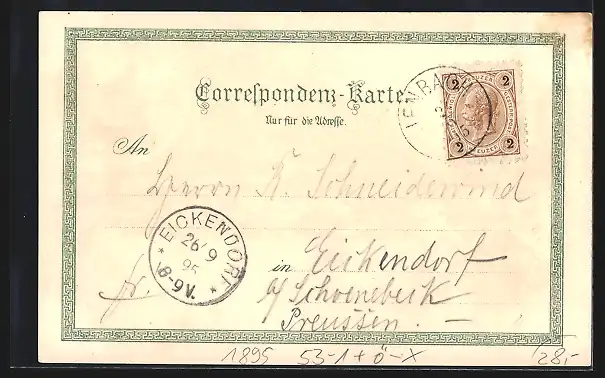 Correspondenz-Karte
Nur für die Adresse.
JENBACH
2 KREUZER 2
2 KREUZER 2
An
Herrn F. Schneidewind
EICKENDORF
26/9
95
8-9V.
in Eickendorf
fr.
a/Schoenebeck
Preussen. —
1895 53-1+ö-X
/28,-